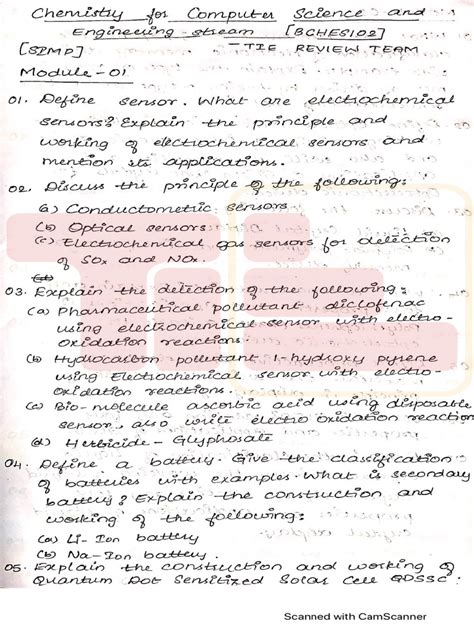 Chemistry for Computer Science and
Engineering stream [BCHES102]
[SIMP] - TIE REVIEW TEAM
Module-01
01. Define sensor. What are electrochemical
sensors? Explain the principle and
working of electrochemical sensors and
mention its applications.
02. Discuss the principle of the following:
(a) Conductometric sensors
(b) Optical sensors
(c) Electrochemical gas sensors for detection
of SOx and NOx.
03. Explain the detection of the following:
(a) Pharmaceutical pollutant diclofenac
using electrochemical sensor with electro-
oxidation reactions.
(b) Hydrocarbon pollutant 1-hydroxy pyrene
using Electrochemical sensor with electro-
oxidation reactions.
(c) Bio-molecule ascorbic acid using disposable
sensor, also write electro oxidation reaction
(d) Herbicide - Glyphosate
04. Define a battery. Give the classification
of batteries with examples. What is secondary
battery? Explain the construction and
working of the following:
(a) Li-Ion battery
(b) Na-Ion battery.
05. Explain the construction and working of
Quantum Dot Sensitized Solar Cell QDSSC.
Scanned with CamScanner